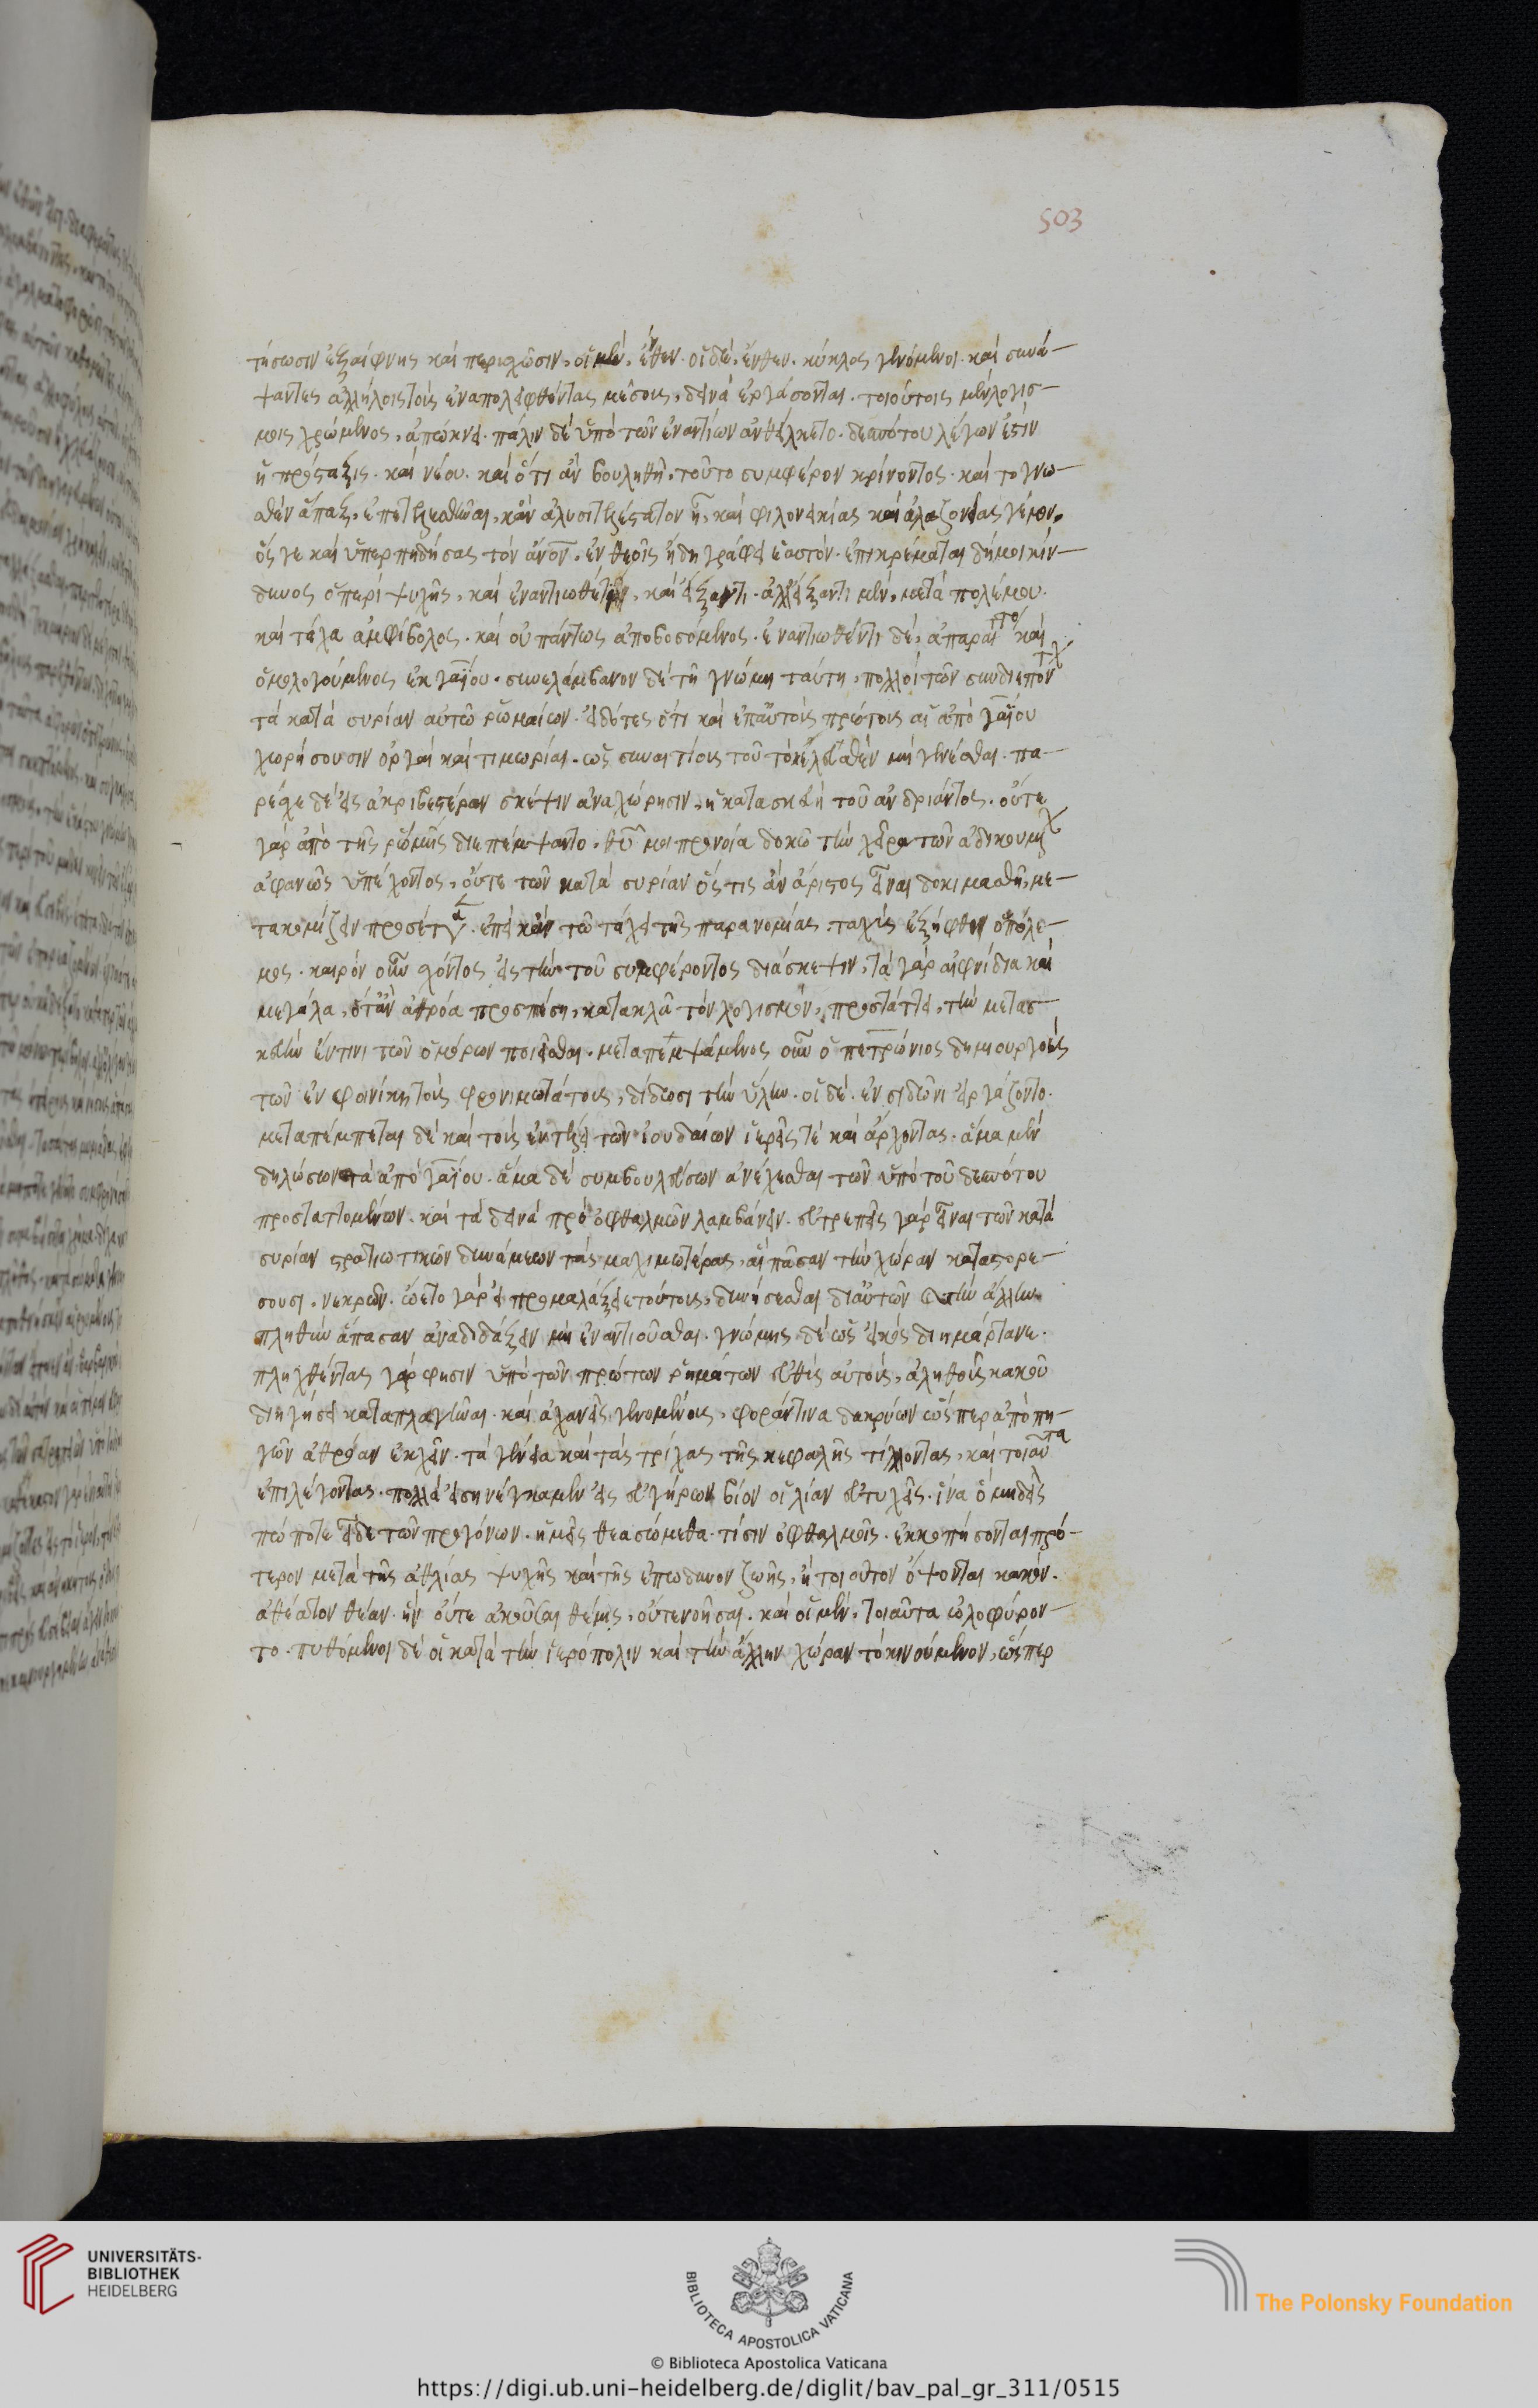 503
τήσωσιν ἐξαίφνης καὶ περισχῶσιν, οἱ μὲν, ἔνθεν· οἱ δὲ, ἔνθεν. κύκλος γενόμενοι· καὶ συνά-
ψαντες ἀλλήλοις τοὺς ἐναποληφθέντας μέσους, δεινὰ ἐργάσονται. τοιούτοις μὲν λογισ-
μοῖς χρώμενος, ἀπώκνει· πάλιν δὲ ὑπὸ τῶν ἐναντίων ἀνθείλκετο. δεσπότου λέγων ἐστὶν
ἡ πρόσταξις. καὶ νέου. καὶ ὅτι ἂν βουληθῇ, τοῦτο συμφέρον κρίνοντος. καὶ τὸ γνω-
σθὲν ἅπαξ, ἐπιτελεσθῆναι, κἂν ἀλυσιτελέστατον ᾖ, καὶ φιλονεικίας καὶ ἀλαζονείας γέμον.
ὅς γε καὶ ὑπερπηδήσας τὸν ἄνον, ἐν θεοῖς ἤδη γράφει ἑαυτόν. ἐπικρέμαται δή μοι κίν-
δυνος ὁ περὶ ψυχῆς, καὶ ἐναντιωθέντι, καὶ εἴξαντι. ἀλλ' εἴξαντι μὲν, μετὰ πολέμου.
καὶ τάχα ἀμφίβολος. καὶ οὐ πάντως ἀποβησόμενος. ἐναντιωθέντι δὲ, ἀπαραίτητο καὶ
ὁμολογούμενος ἐκ γαΐου. συνελάμβανον δὲ τῇ γνώμῃ ταύτῃ, πολλοὶ τῶν συνδιεπόντ
τὰ κατὰ συρίαν αὐτῶ ῥωμαίων. εἰδότες ὅτι καὶ ἐπ' αὐτοὺς πρώτους αἱ ἀπὸ γαΐου
χωρήσουσιν ὀργαὶ καὶ τιμωρίαι. ὡς συναιτίους τοῦ τὸ κελευσθὲν μὴ γενέσθαι. πα-
ρέσχε δὲ εἰς ἀκριβεστέραν σκέψιν ἀναχώρησιν, ἡ κατασκευὴ τοῦ ἀνδριάντος. οὔτε
γὰρ ἀπὸ τῆς ῥώμης διεπέμψαντο. θυ μοι προνοία δοκῶ τὴν χεῖρα τῶν ἀδικουμέν
ἀφανῶς ὑπερέχοντος, οὔτε τῶν κατὰ συρίαν ὅστις ἂν ἄριστος εἶναι δοκιμασθῇ, με-
τακομίζειν προσέτα. ἐπεὶ κἂν τῶ τάχει τῆς παρανομίας, ταχὺς ἐξήφθη ὁ πόλε-
μος. καιρὸν οὖν σχόντος εἰς τὴν τοῦ συμφέροντος διάσκεψιν, τὰ γὰρ αἰφνίδια καὶ
μεγάλα, ὅταν ἀθρόα προσπέσῃ, κατακλᾷ τὸν λογισμόν, προστάττει, τὴν κατασ-
κευὴν ἔν τινι τῶν ὁμόρων ποιεῖσθαι. μεταπεμψάμενος οὖν ὁ πετρώνιος δημιουργοὺς
τῶν ἐν φοινίκῃ τοὺς φρονιμωτάτους, δίδωσι τὴν ὕλην. οἱ δὲ. ἐν σιδῶνι εἰργάζοντο.
μεταπέμπεται δὲ καὶ τοὺς ἐν τέλει τῶν ἰουδαίων ἱερεῖς τὲ καὶ ἄρχοντας. ἅμα μὲν
δηλώσων τὰ ἀπὸ γαΐου. ἅμα δὲ συμβουλεύσων ἀνέχεσθαι τῶν ὑπὸ τοῦ δεσπότου
προστατομένων. καὶ τὰ δεινὰ πρὸ ὀφθαλμῶν λαμβάνειν. εὐτρεπεῖς γὰρ εἶναι τῶν κατὰ
συρίαν στρατιωτικῶν δυνάμεων τὰς μαχιμωτέρας, αἳ πᾶσαν τὴν χώραν καταστορέ-
σουσι, νεκρῶν. ᾤετο γὰρ εἰ προμαλάξειε τούτους, δυνήσεσθαι δι' αὐτῶν καὶ τὴν ἄλλην
πληθὺν ἅπασαν ἀναδιδάξειν μὴ ἐναντιοῦσθαι. γνώμης δὲ ὡς εἰκὸς διημάρτανε.
πληχθέντας γάρ φησιν ὑπὸ τῶν πρώτων ῥημάτων εὐθὺς αὐτοὺς, ἀληθοῦς κακοῦ
διηγήσει καταπλαγῆναι. καὶ ἀχανεῖς γενομένους, φοράν τινα δακρύων ὥσπερ ἀπὸ πη-
γῶν ἀθρόαν ἐκχεῖν. τὰ γένεια καὶ τὰς τρίχας τῆς κεφαλῆς τίλλοντας, καὶ τοιαῦτα
ἐπιλέγοντας. πολλὰ εἰσηνέγκαμεν εἰς εὐγήρων βίον οἱ λίαν εὐτυχεῖς. ἵνα ὃ μηδεὶς
πώποτε εἶδε τῶν προγόνων. ἡμεῖς θεασώμεθα. τίσιν ὀφθαλμοῖς. ἐκκοπήσονται πρό-
τερον μετὰ τῆς ἀθλίας ψυχῆς καὶ τῆς ἐπωδύνου ζωῆς, ἢ τοιοῦτον ὄψονται κακόν.
ἀθέατον θέαν. ἣν οὔτε ἀκοῦσαι θέμις, οὔτε νοῆσαι. καὶ οἱ μὲν, τοιαῦτα ὠλοφύρον-
το. πυθόμενοι δὲ οἱ κατὰ τὴν ἱερόπολιν καὶ τὴν ἄλλην χώραν τὸ κινούμενον, ὥσπερ
UNIVERSITÄTS-
BIBLIOTHEK
HEIDELBERG
BIBLIOTECA APOSTOLICA VATICANA
The Polonsky Foundation
© Biblioteca Apostolica Vaticana
https://digi.ub.uni-heidelberg.de/diglit/bav_pal_gr_311/0515